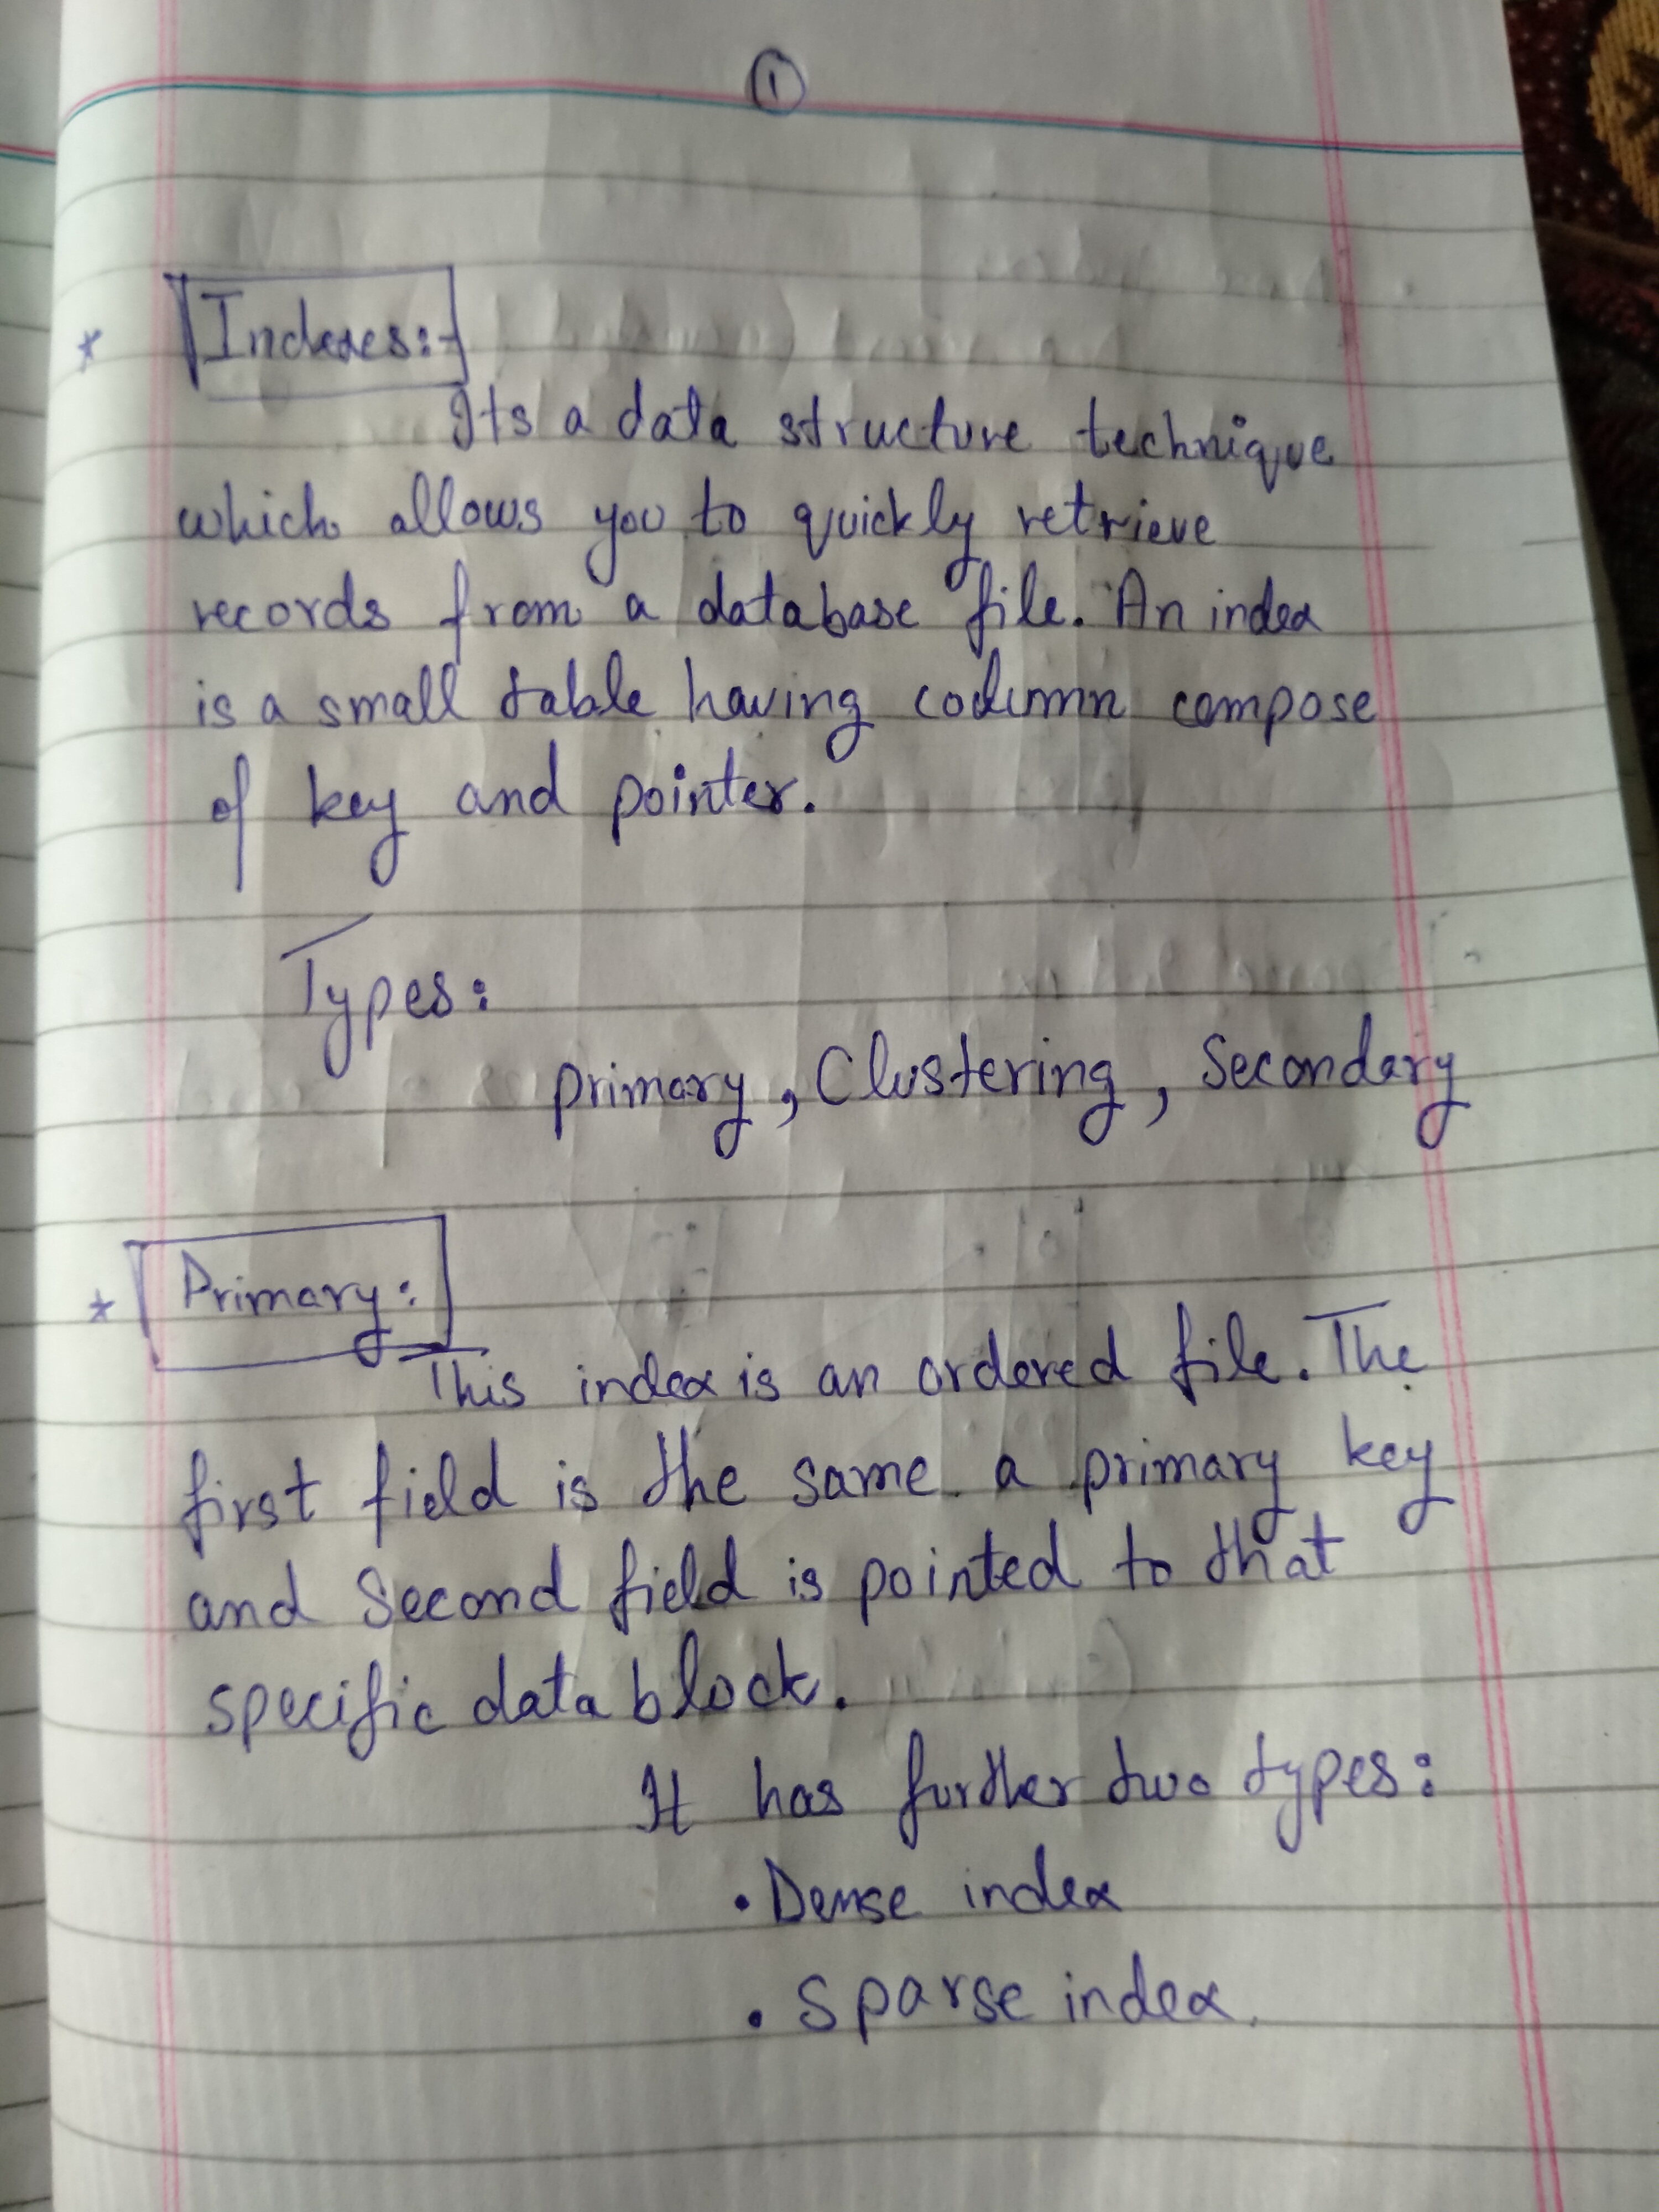 1
* Indexes:-
Its a data structure technique
which allows you to quickly retrieve
records from a database file. An index
is a small table having column compose
of key and pointer.
Types:
primary, Clustering, Secondary
* Primary:
This index is an ordered file. The
first field is the same a primary key
and Second field is pointed to that
specific data block.
It has further two types:
• Dense index
• Sparse index.